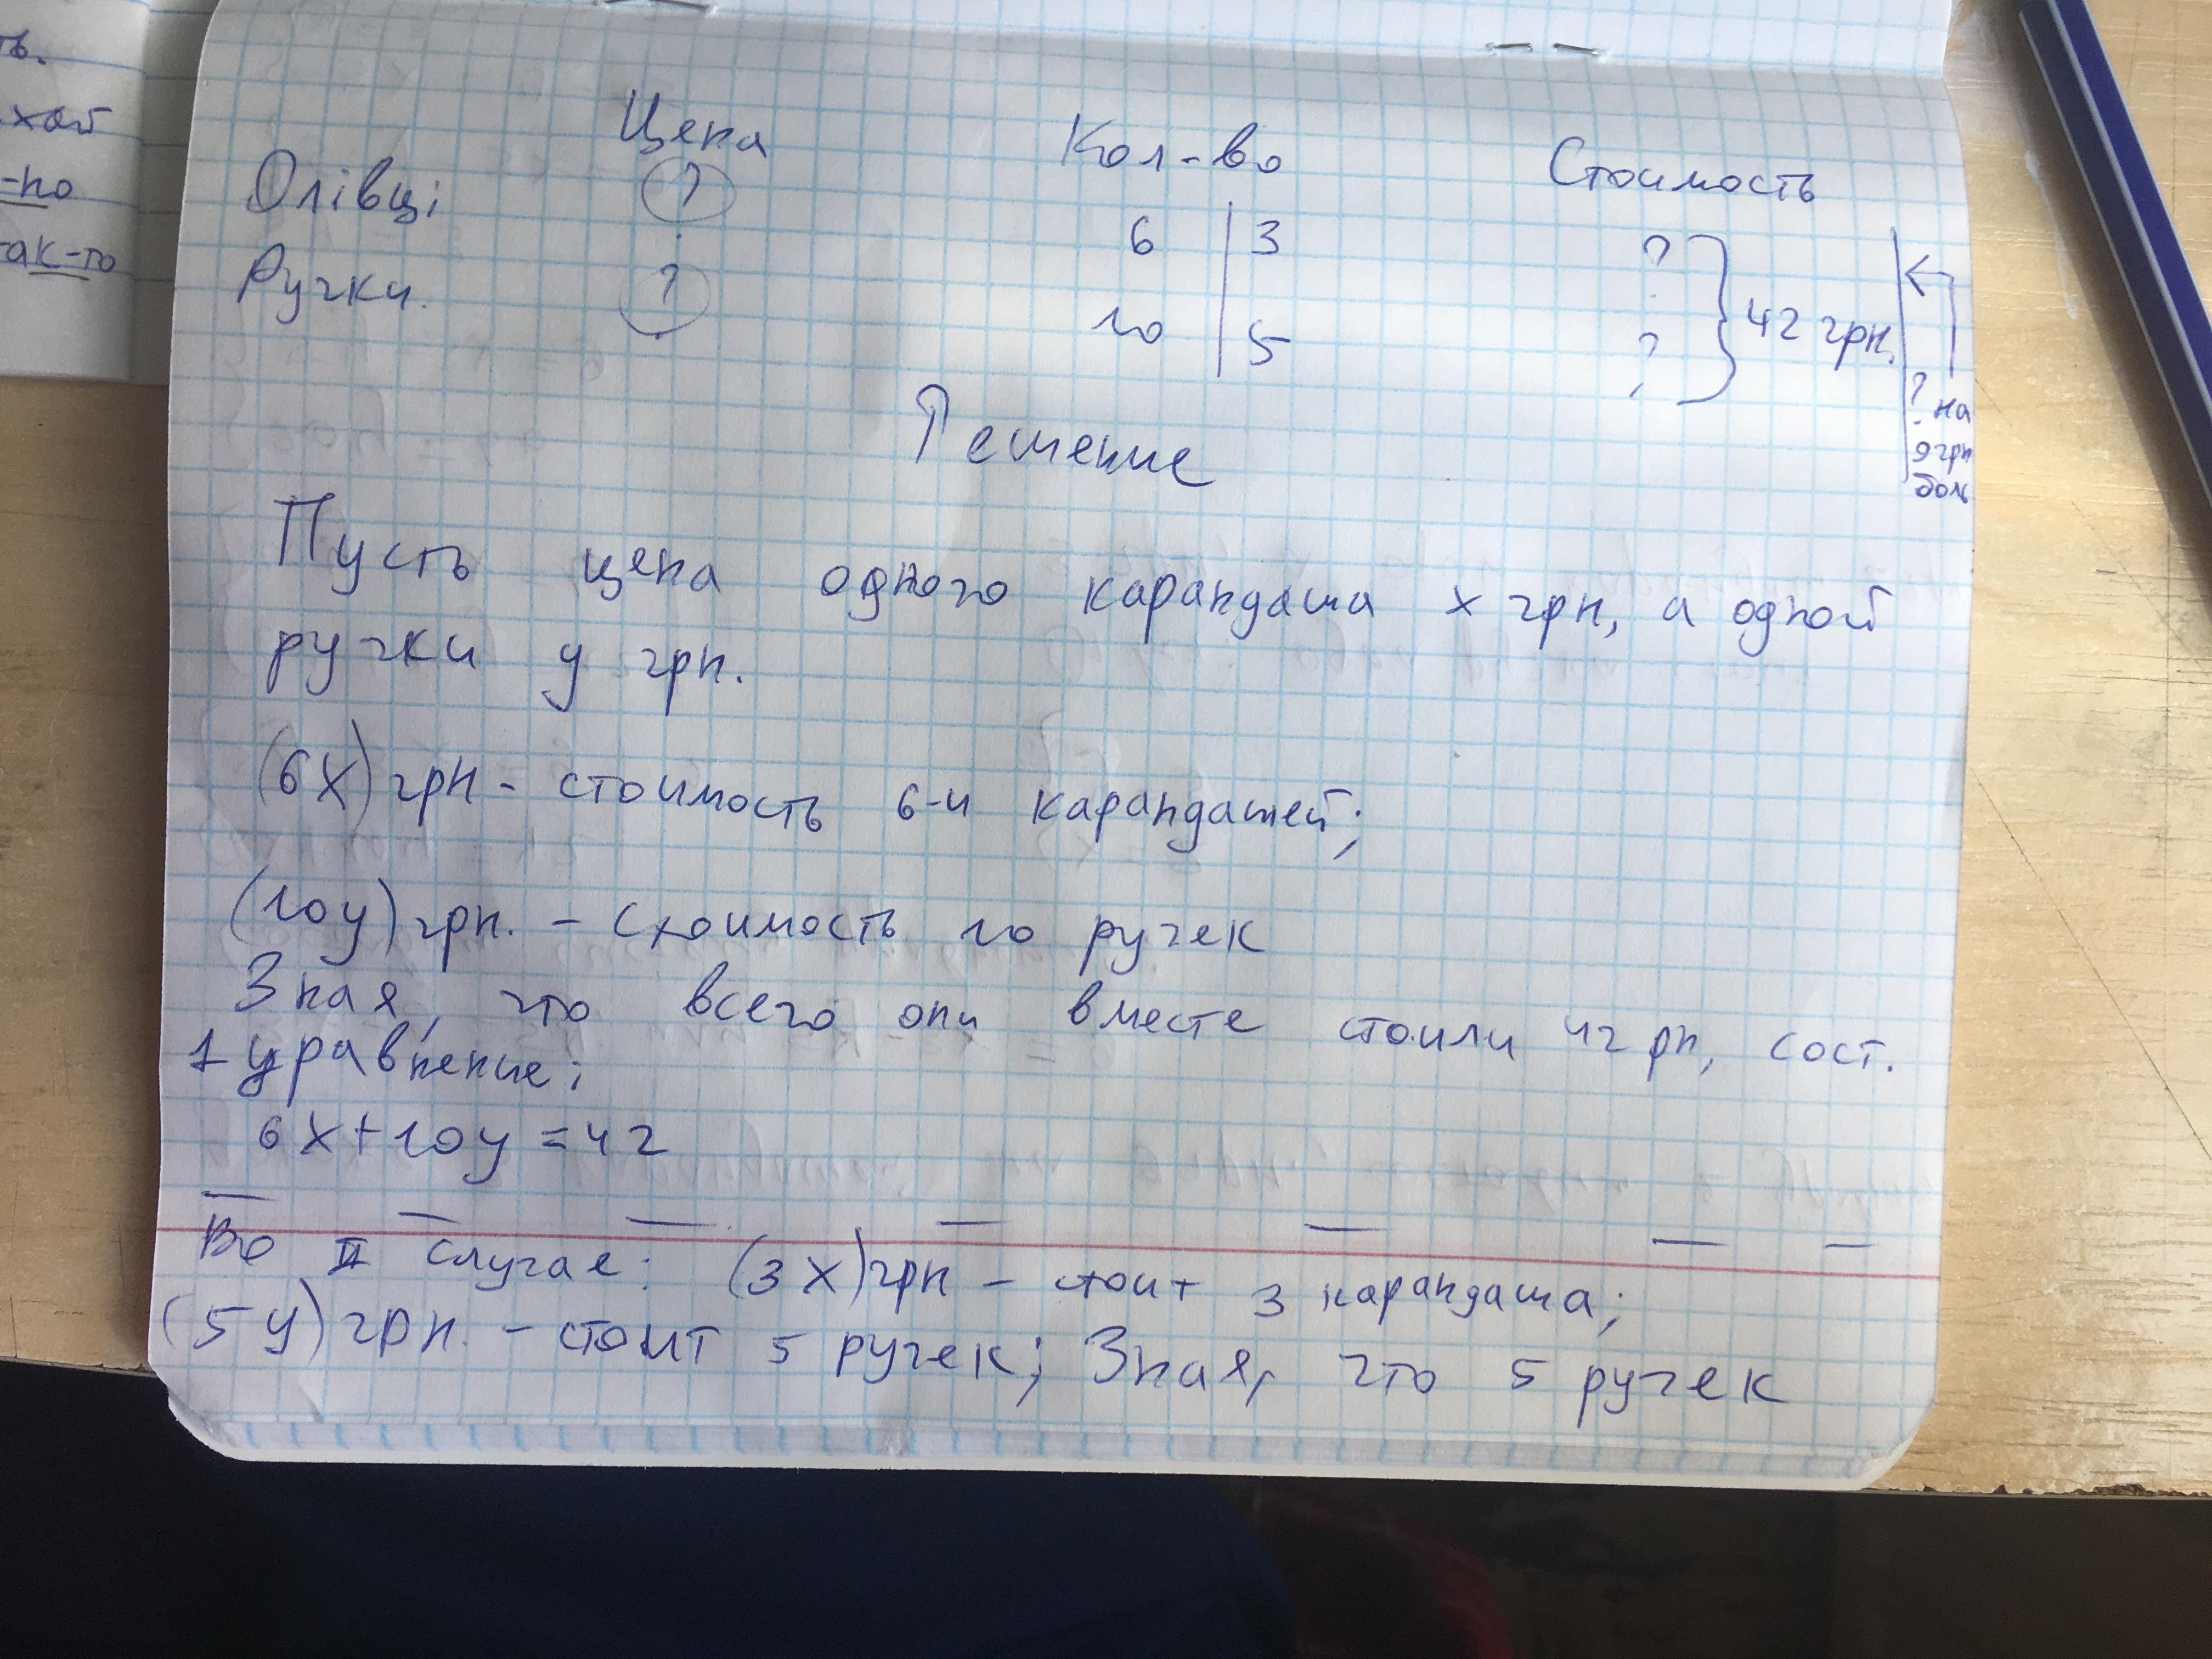 ть.
хой
-но
ак-то
Цена Кол-во Стоимость
Олівці ? 6 | 3 ?
Ручки. ? 10 | 5 ? } 42 грн.
? на
9 грн
боль
Решение
Пусть цена одного карандаша x грн, а одной
ручки y грн.
(6x) грн - стоимость 6-и карандашей;
(10y) грн. - стоимость 10 ручек
Зная, что всего они вместе стоили 42 рн, сост.
1 уравнение:
6x+10y=42
Во II случае: (3x) грн - стоит 3 карандаша;
(5y) грн. - стоит 5 ручек; Зная, что 5 ручек